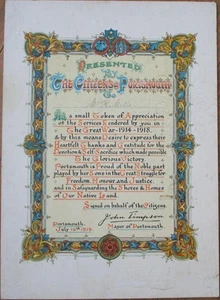 PRESENTED
BY
THE CITIZENS OF PORTSMOUTH
TO
As a small Token of Appreciation
of the Services Rendered by you in
The Great War-1914-1918.
& by this means Desire to express their
Heartfelt Thanks and Gratitude for the
Devotion & Self Sacrifice which made possible
the Glorious Victory.
Portsmouth is Proud of the Noble part
played by her Sons in the Great Struggle for
Freedom, Honour and Justice
and in Safeguarding the Shores & Homes
of Our Native Land.
Signed on behalf of the Citizens.
John Timpson
Portsmouth. Mayor of Portsmouth.
July 19th 1919.